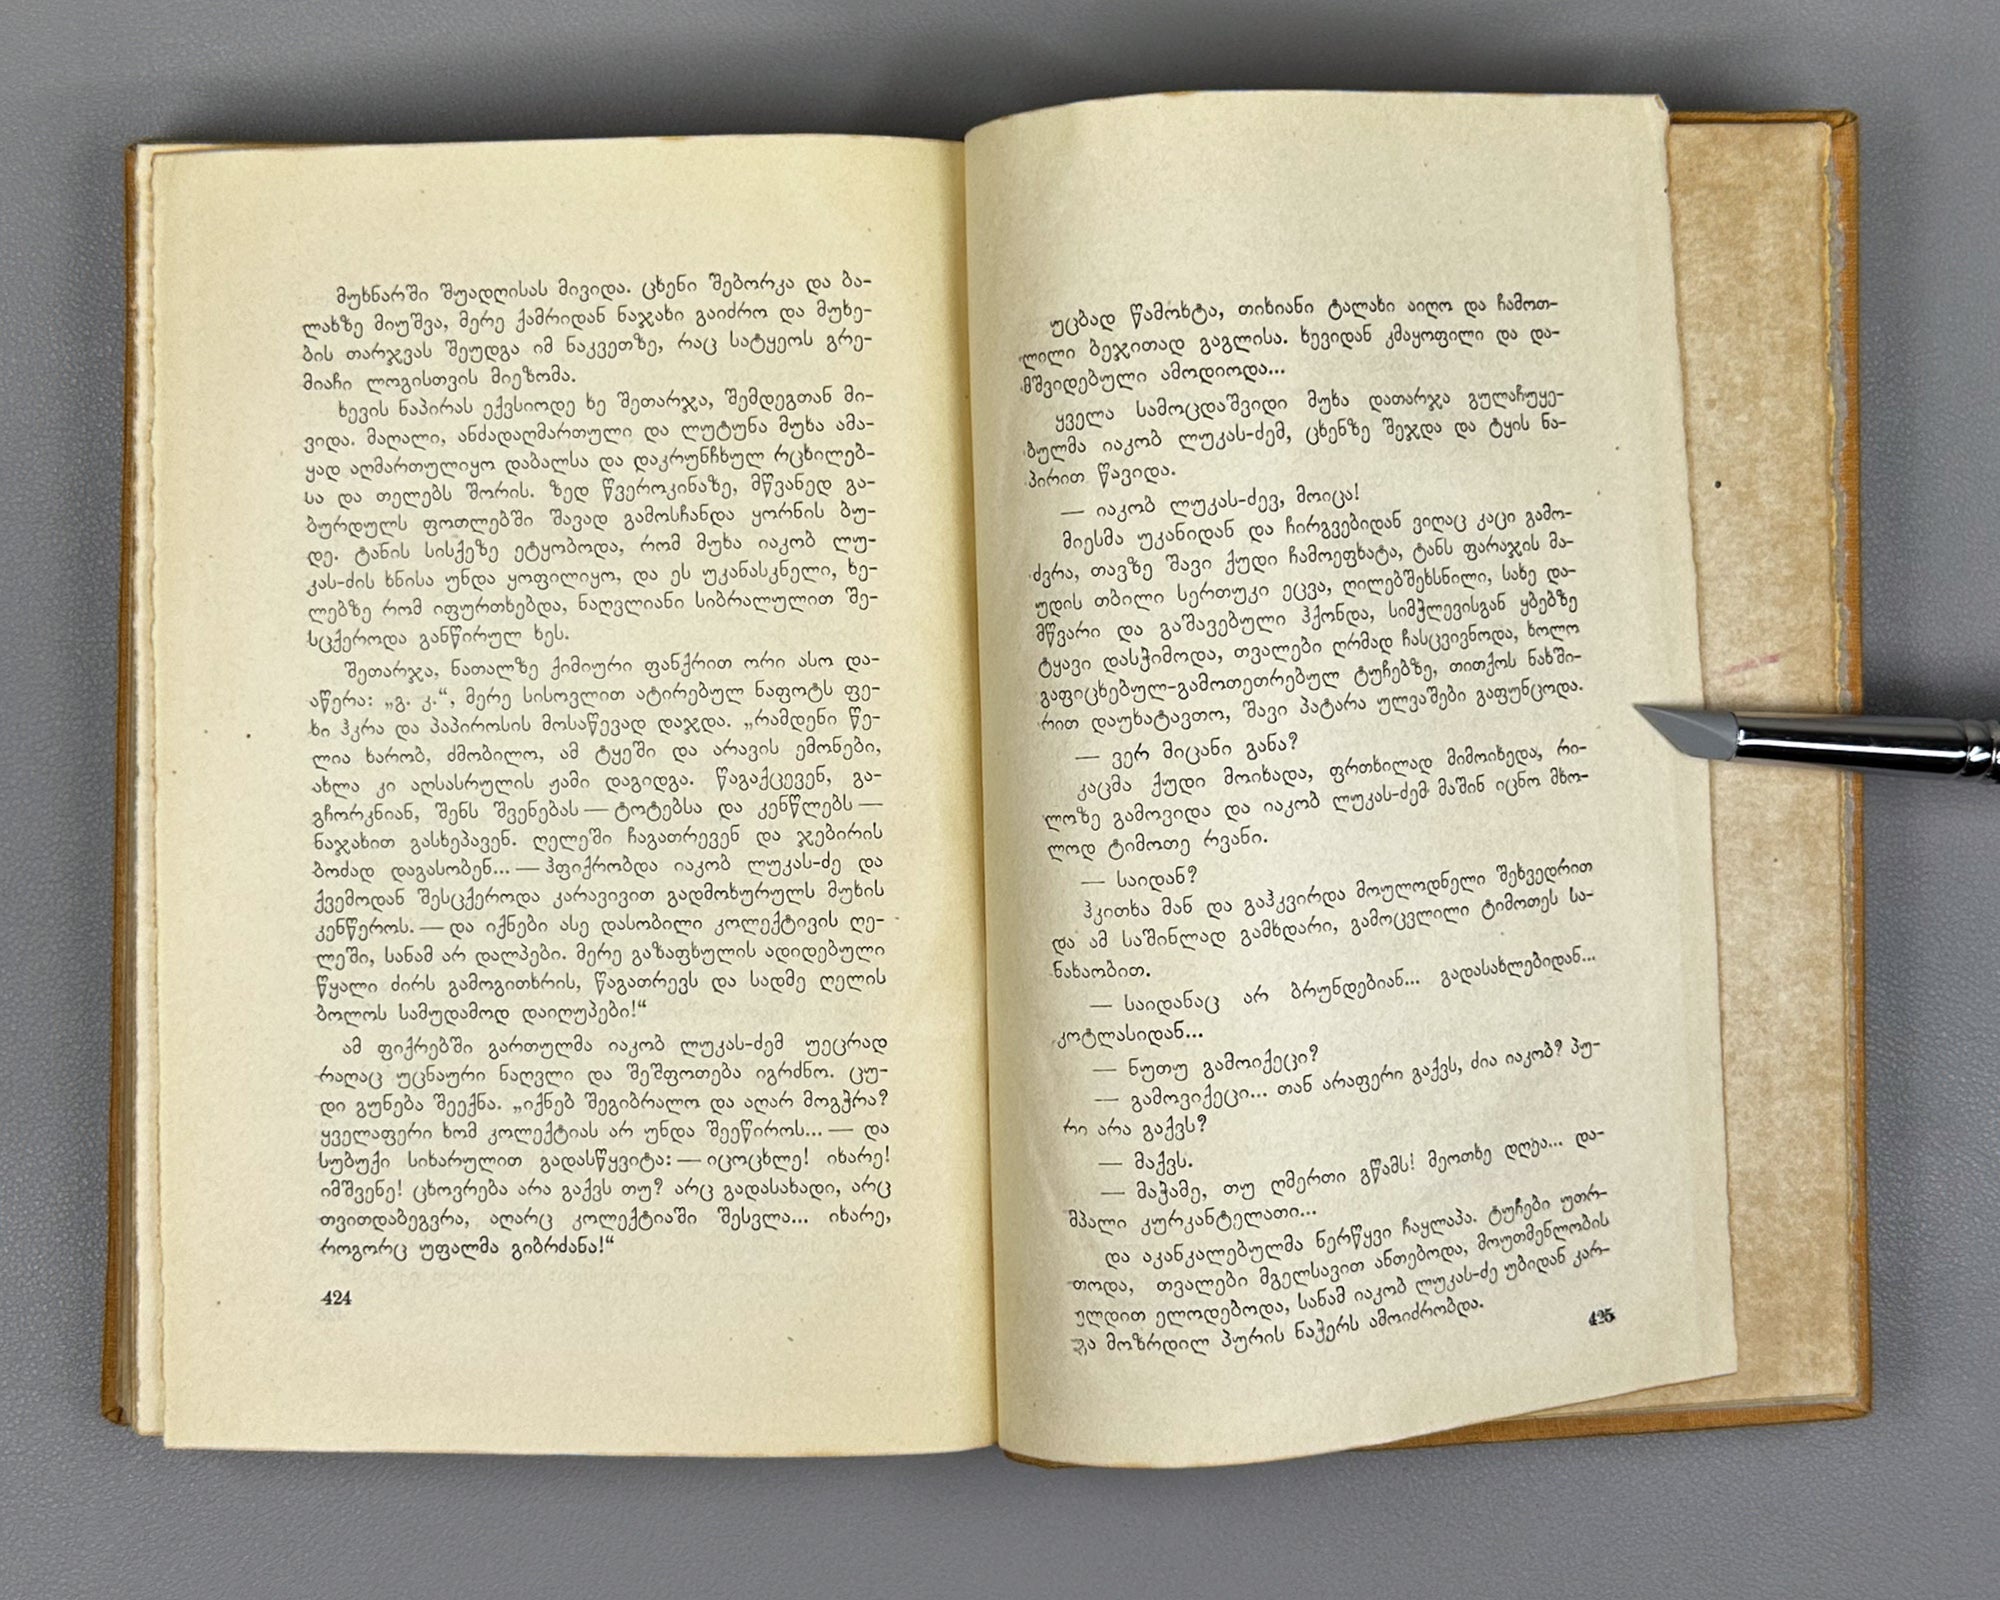 მუხნარში შუადღისას მივიდა. ცხენი შებორკა და ბა-
ლახზე მიუშვა, მერე ქამრიდან ნაჯახი გაიძრო და მუხე-
ბის თარჯვას შეუდგა იმ ნაკვეთზე, რაც სატყეოს გრე-
მიაჩი ლოგისთვის მიეზომა.
ხევის ნაპირას ექვსიოდე ხე შეთარჯა, შემდეგთან მი-
ვიდა. მაღალი, ანძადაღმართული და ლუტუნა მუხა ამა-
ყად აღმართულიყო დაბალსა და დაკრუნჩხულ რცხილებ-
სა და თელებს შორის. ზედ წვეროკინაზე, მწვანედ გა-
ბურდულს ფოთლებში შავად გამოსჩანდა ყორნის ბუ-
დე. ტანის სისქეზე ეტყობოდა, რომ მუხა იაკობ ლუ-
კას-ძის ხნისა უნდა ყოფილიყო, და ეს უკანასკნელი, ხე-
ლებზე რომ იფურთხებდა, ნაღვლიანი სიბრალულით შე-
სცქეროდა განწირულ ხეს.
შეთარჯა, ნათალზე ქიმიური ფანქრით ორი ასო და-
აწერა: „გ. კ.“, მერე სისოვლით ატირებულ ნაფოტს ფე-
ხი ჰკრა და პაპიროსის მოსაწევად დაჯდა. „რამდენი წე-
ლია ხარობ, ძმობილო, ამ ტყეში და არავის ემონები,
ახლა კი აღსასრულის ჟამი დაგიდგა. წაგაქცევენ, გა-
გჩორკნიან, შენს შვენებას — ტოტებსა და კენწლებს —
ნაჯახით გასხეპავენ. ღელეში ჩაგათრევენ და ჯებირის
ბოძად დაგასობენ... — ჰფიქრობდა იაკობ ლუკას-ძე და
ქვემოდან შესცქეროდა კარავივით გადმოხურულს მუხის
კენწეროს. — და იქნები ასე დასობილი კოლექტივის ღე-
ლეში, სანამ არ დალპები. მერე გაზაფხულის ადიდებული
წყალი ძირს გამოგითხრის, წაგათრევს და სადმე ღელის
ბოლოს სამუდამოდ დაიღუპები!“
ამ ფიქრებში გართულმა იაკობ ლუკას-ძემ უეცრად
რაღაც უცნაური ნაღვლი და შეშფოთება იგრძნო. ცუ-
დი გუნება შეექნა. „იქნებ შეგიბრალო და აღარ მოგჭრა?
ყველაფერი ხომ კოლექტიას არ უნდა შეეწიროს... — და
სუბუქი სიხარულით გადასწყვიტა: — იცოცხლე! იხარე!
იმშვენე! ცხოვრება არა გაქვს თუ? არც გადასახადი, არც
თვითდაბეგვრა, აღარც კოლექტიაში შესვლა... იხარე,
როგორც უფალმა გიბრძანა!“
424
უცბად წამოხტა, თიხიანი ტალახი აიღო და ჩამოთ-
ლილი ბეჯითად გაგლისა. ხევიდან კმაყოფილი და და-
მშვიდებული ამოდიოდა...
ყველა სამოცდაშვიდი მუხა დათარჯა გულაჩუყე-
ბულმა იაკობ ლუკას-ძემ, ცხენზე შეჯდა და ტყის ნა-
პირით წავიდა.
— იაკობ ლუკას-ძევ, მოიცა!
მიესმა უკანიდან და ჩირგვებიდან ვიღაც კაცი გამო-
ძვრა, თავზე შავი ქუდი ჩამოეფხატა, ტანს ფარაჯის მა-
უდის თბილი სერთუკი ეცვა, ღილებშეხსნილი, სახე და-
მწვარი და გაშავებული ჰქონდა, სიმჭლევისგან ყბებზე
ტყავი დასჭიმოდა, თვალები ღრმად ჩასცვივნოდა, ხოლო
გაფიცხებულ-გამოთეთრებულ ტუჩებზე, თითქოს ნახში-
რით დაუხატავთო, შავი პატარა ულვაშები გაფუნცოდა.
— ვერ მიცანი განა?
კაცმა ქუდი მოიხადა, ფრთხილად მიმოიხედა, რი-
ლოზე გამოვიდა და იაკობ ლუკას-ძემ მაშინ იცნო მხო-
ლოდ ტიმოთე რვანი.
— საიდან?
ჰკითხა მან და გაჰკვირდა მოულოდნელი შეხვედრით
და ამ საშინლად გამხდარი, გამოცვლილი ტიმოთეს სა-
ნახაობით.
— საიდანაც არ ბრუნდებიან... გადასახლებიდან...
კოტლასიდან...
— ნუთუ გამოიქეცი?
— გამოვიქეცი... თან არაფერი გაქვს, ძია იაკობ? პუ-
რი არა გაქვს?
— მაქვს.
— მაჭამე, თუ ღმერთი გწამს! მეოთხე დღეა... და-
მპალი კურკანტელათი...
და აკანკალებულმა ნერწყვი ჩაყლაპა. ტუჩები უთრ-
თოდა, თვალები მგელსავით ანთებოდა, მოუთმენლობის
ულდით ელოდებოდა, სანამ იაკობ ლუკას-ძე უბიდან კარ-
გა მოზრდილ პურის ნაჭერს ამოიძრობდა.
425